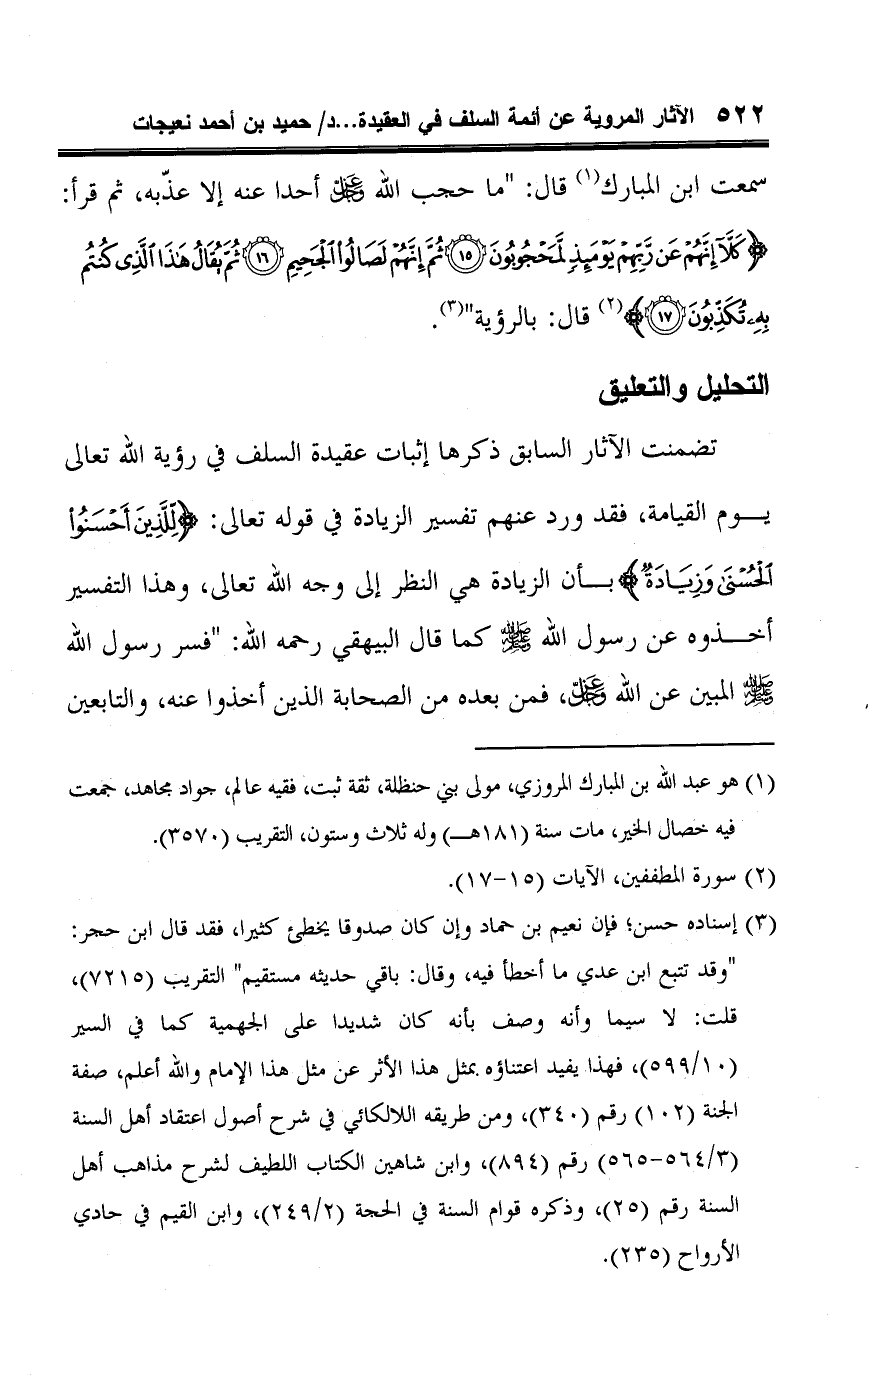 ٥٢٢ الآثار المروية عن أئمة السلف في العقيدة...د/ حميد بن أحمد نعيجات
سمعت ابن المبارك(١) قال: "ما حجب الله عز وجل أحدا عنه إلا عذّبه، ثم قرأ:
﴿كَلَّآ إِنَّهُمْ عَن رَّبِّهِمْ يَوْمَئِذٍ لَّمَحْجُوبُونَ ١٥ ثُمَّ إِنَّهُمْ لَصَالُوا۟ ٱلْجَحِيمِ ١٦ ثُمَّ يُقَالُ هَٰذَا ٱلَّذِى كُنتُم
بِهِۦ تُكَذِّبُونَ ١٧﴾(٢) قال: بالرؤية"(٣).
التحليل والتعليق
تضمنت الآثار السابق ذكرها إثبات عقيدة السلف في رؤية الله تعالى
يـــوم القيامة، فقد ورد عنهم تفسير الزيادة في قوله تعالى: ﴿لِّلَّذِينَ أَحْسَنُوا۟
ٱلْحُسْنَىٰ وَزِيَادَةٌ﴾ بـــأن الزيادة هي النظر إلى وجه الله تعالى، وهذا التفسير
أخـــذوه عن رسول الله ﷺ كما قال البيهقي رحمه الله: "فسر رسول الله
ﷺ المبين عن الله عز وجل، فمن بعده من الصحابة الذين أخذوا عنه، والتابعين
(١) هو عبد الله بن المبارك المروزي، مولى بني حنظلة، ثقة ثبت، فقيه عالم، جواد مجاهد، جمعت
فيه خصال الخير، مات سنة (١٨١هـــ) وله ثلاث وستون، التقريب (٣٥٧٠).
(٢) سورة المطففين، الآيات (١٥-١٧).
(٣) إسناده حسن؛ فإن نعيم بن حماد وإن كان صدوقا يخطئ كثيرا، فقد قال ابن حجر:
"وقد تتبع ابن عدي ما أخطأ فيه، وقال: باقي حديثه مستقيم" التقريب (٧٢١٥)،
قلت: لا سيما وأنه وصف بأنه كان شديدا على الجهمية كما في السير
(٥٩٩/١٠)، فهذا يفيد اعتناؤه بمثل هذا الأثر عن مثل هذا الإمام والله أعلم، صفة
الجنة (١٠٢) رقم (٣٤٠)، ومن طريقه اللالكائي في شرح أصول اعتقاد أهل السنة
(٥٦٤/٣-٥٦٥) رقم (٨٩٤)، وابن شاهين الكتاب اللطيف لشرح مذاهب أهل
السنة رقم (٢٥)، وذكره قوام السنة في الحجة (٢٤٩/٢)، وابن القيم في حادي
الأرواح (٢٣٥).